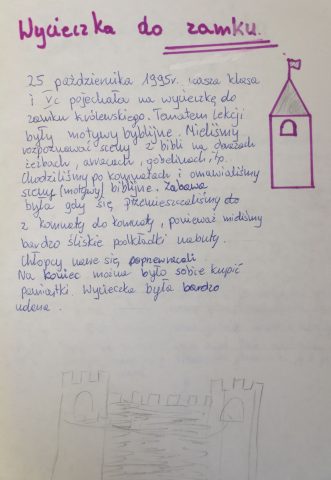 Wycieczka do zamku.
25 października 1995r. nasza klasa
i Vc pojechała na wycieczkę do
zamku królewskiego. Tematem lekcji
były motywy byblijne. Mieliśmy
rozpoznawać sceny z bibli na obrazach
rzeźbach, arrasach, gobelinach, itp.
Chodziliśmy po komnatach i omawialiśmy
sceny (motywy) biblijne. Zabawa
była gdy się przemieszczaliśmy
z komnaty do komnaty, ponieważ mieliśmy
bardzo śliskie podkładki na buty.
Chłopcy nawe się poprzewracali.
Na koniec można było sobie kupić
pamiątki. Wycieczka była bardzo
udana.